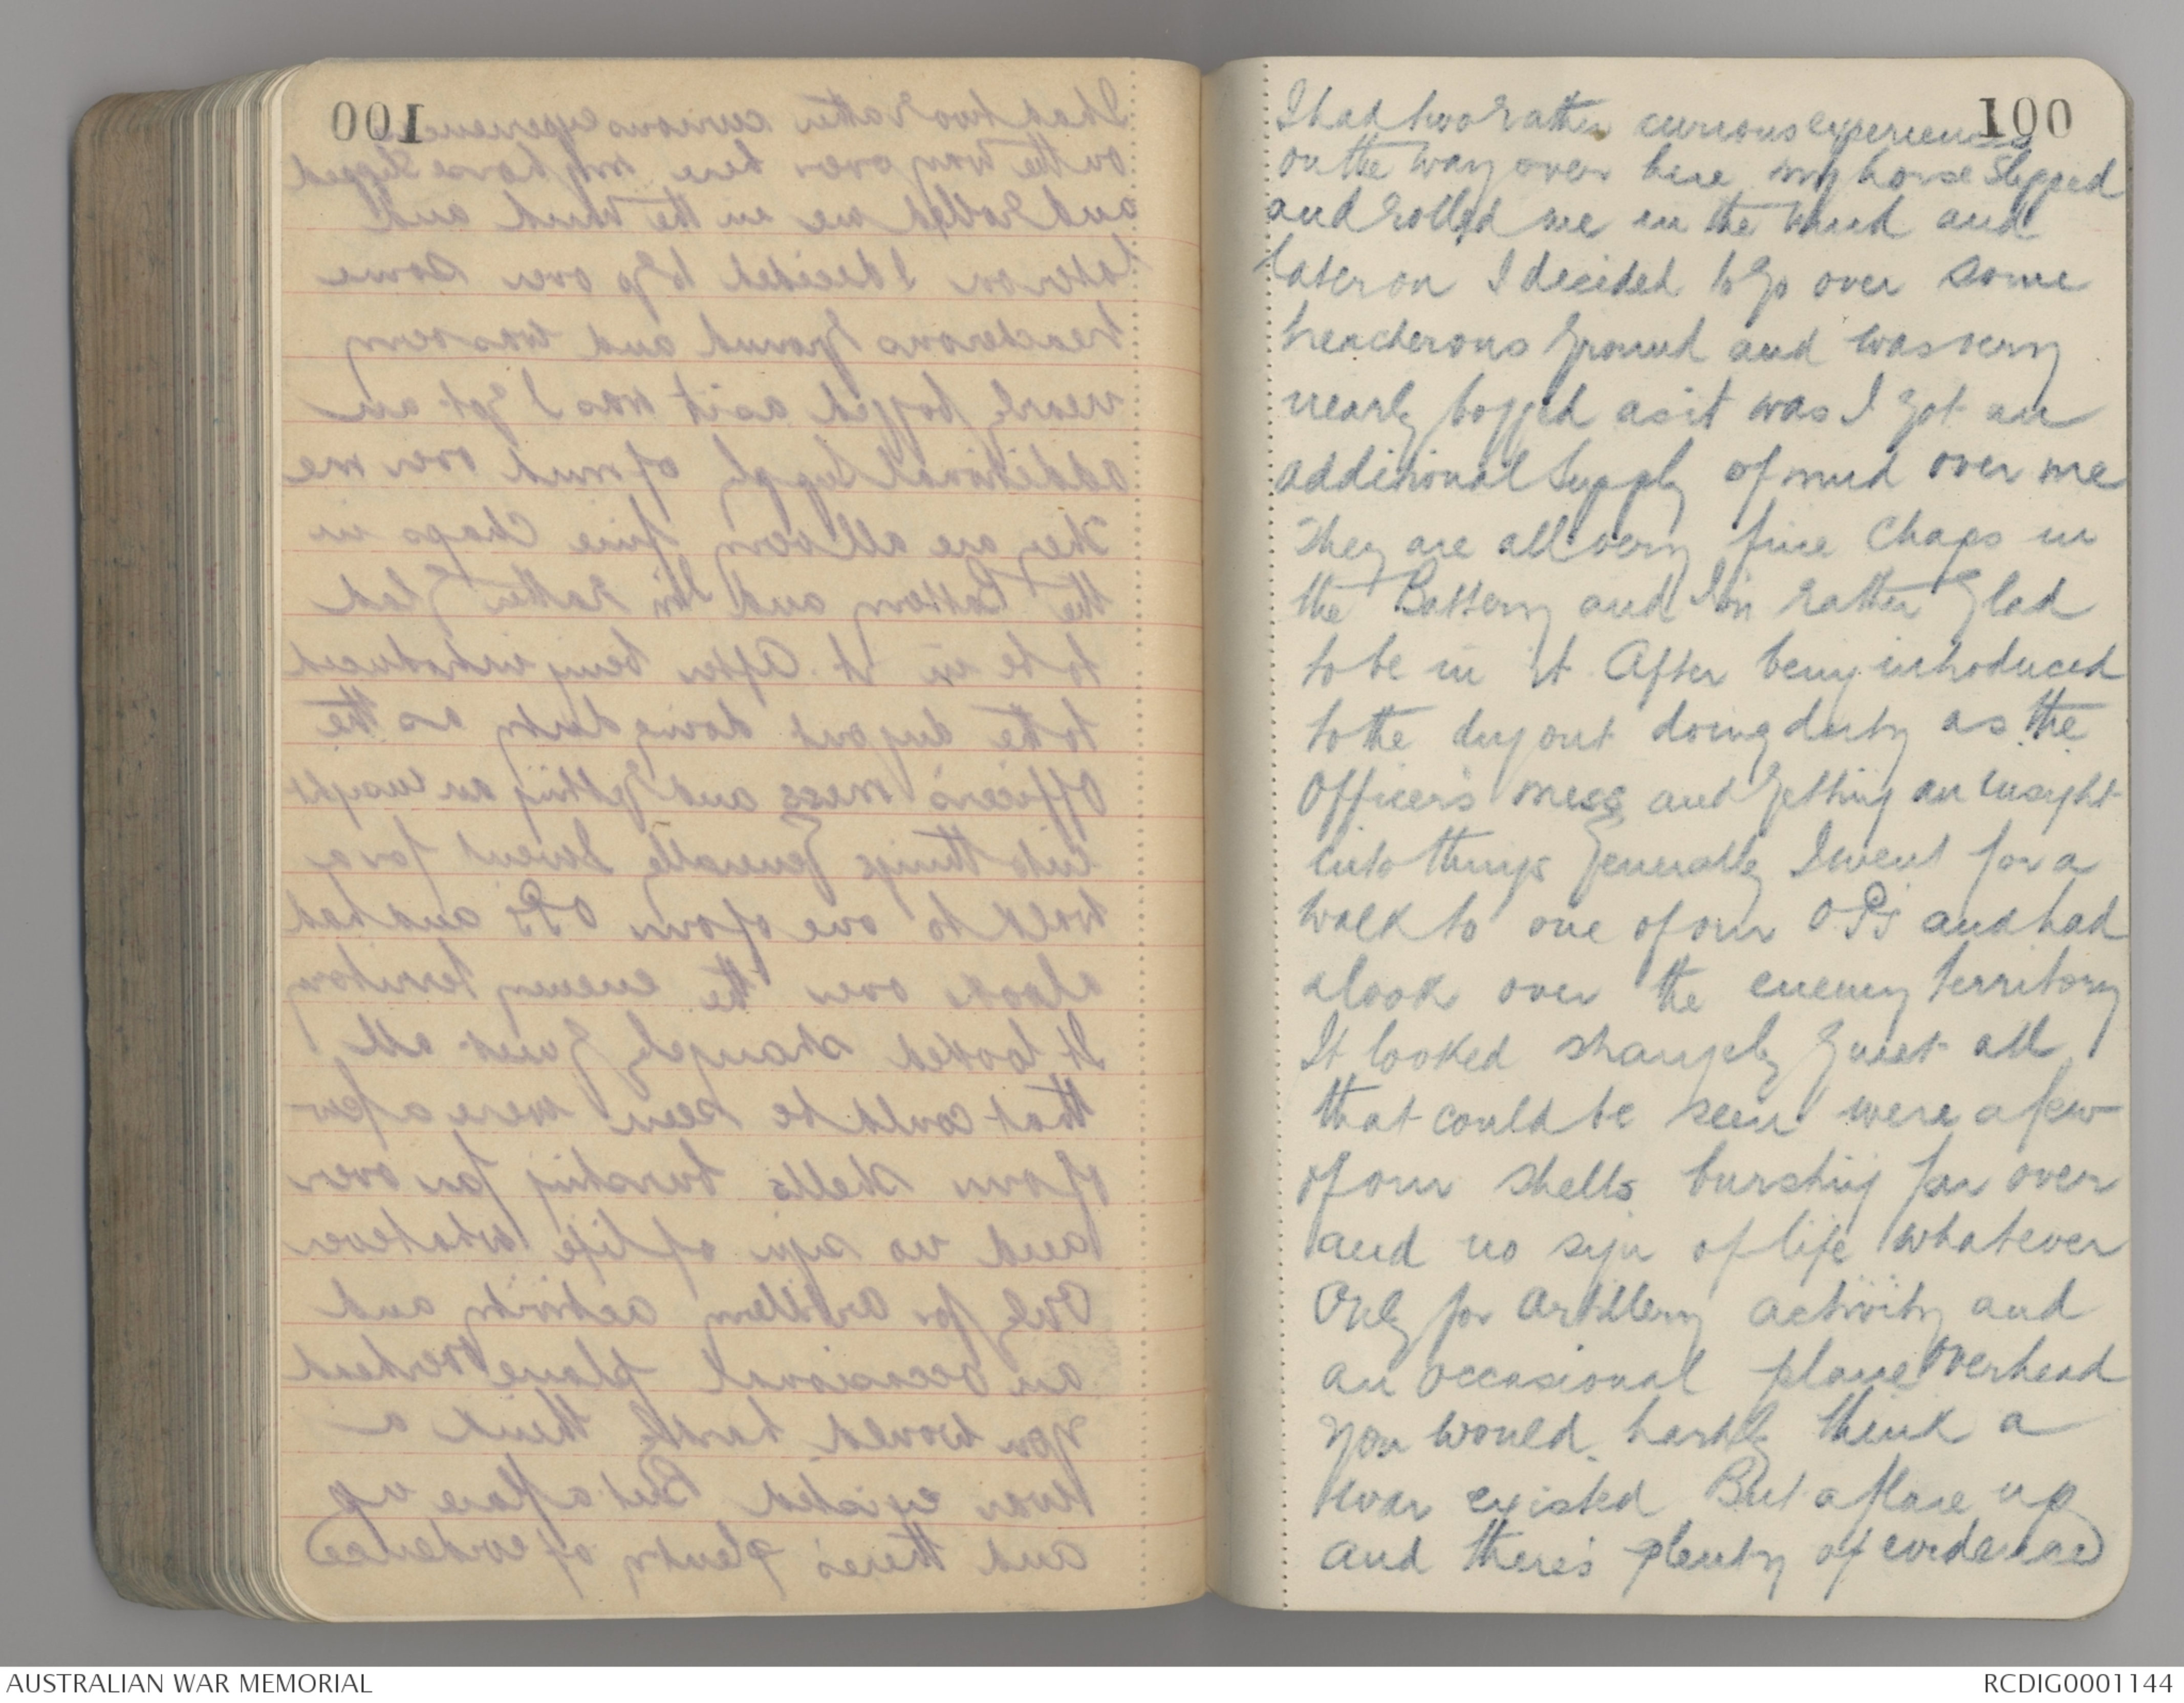 100
I had two rather curious experiences
on the way over here my horse slipped
and rolled me in the mud and
later on I decided to go over some
treacherous ground and was very
nearly bogged as it was I got an
additional supply of mud over me
They are all very fine chaps in
the Battery and I'm rather glad
to be in it. After being introduced
to the dugout doing duty as the
Officer's mess and getting an insight
into things generally I went for a
walk to one of our O.P's and had
a look over the enemy territory
It looked strangely quiet all
that could be seen were a few
of our shells bursting far over
and no sign of life whatever
Only for artillery activity and
an occasional plane overhead
you would hardly think a
war existed But a flare up
and there's plenty of evidence
AUSTRALIAN WAR MEMORIAL
RCDIG0001144